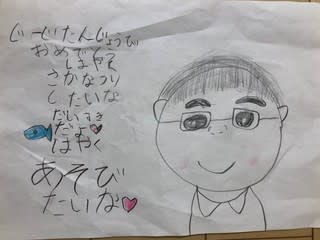 じーじたんじょうび
おめでとう
はやく
さかなつり
したいな
だいすき
だよ
はやく
あそび
たいな